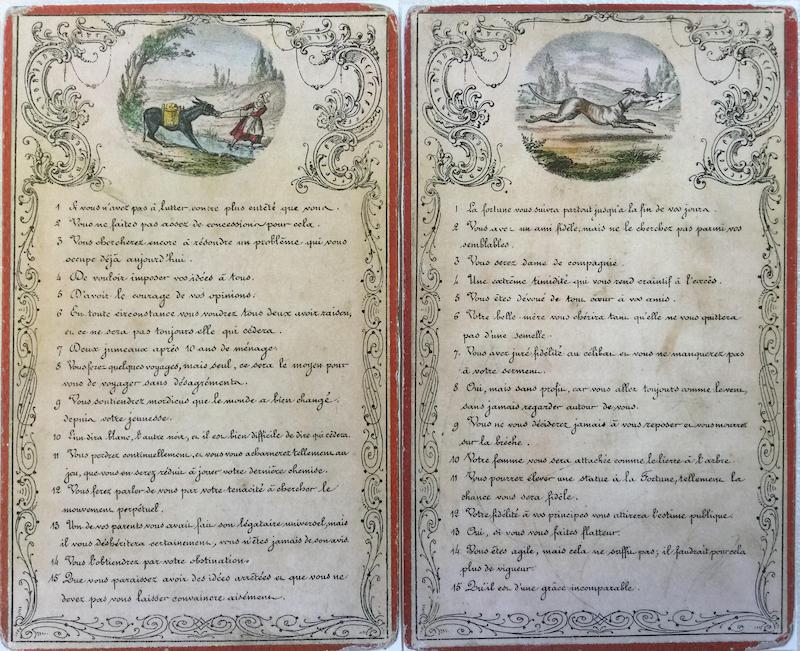 1 Si vous n'avez pas à lutter contre plus entêté que vous.
2 Vous ne faites pas assez de concessions pour cela.
3 Vous chercherez encore à résoudre un problème qui vous
occupe déjà aujourd'hui.
4 De vouloir imposer vos idées à tous.
5 D'avoir le courage de vos opinions.
6 En toute circonstance vous voudrez tous deux avoir raison,
et ce ne sera pas toujours elle qui cédera.
7 Deux jumeaux après 10 ans de ménage.
8 Vous ferez quelques voyages, mais seul, ce sera le moyen pour
vous de voyager sans désagréments.
9 Vous soutiendrez mordicus que le monde a bien changé
depuis votre jeunesse.
10 L'un dira blanc, l'autre noir, et il est bien difficile de dire qui cédera.
11 Vous perdrez continuellement, et vous vous acharnerez tellement au
jeu, que vous en serez réduit à jouer votre dernière chemise.
12 Vous ferez parler de vous par votre tenacité à chercher le
mouvement perpétuel.
13 Un de vos parents vous avait fait son légataire universel, mais
il vous déshéritera certainement, vous n'êtes jamais de son avis.
14 Vous l'obtiendrez par votre obstination.
15 Que vous paraissez avoir des idées arrêtées et que vous ne
devez pas vous laisser convaincre aisément.
1 La fortune vous suivra partout jusqu'à la fin de vos jours.
2 Vous avez un ami fidèle, mais ne le cherchez pas parmi vos
semblables.
3 Vous serez dame de compagnie.
4 Une extrême timidité qui vous rend craintif à l'excès.
5 Vous êtes dévoué de tout cœur à vos amis.
6 Votre belle-mère vous chérira tant qu'elle ne vous quittera
pas d'une semelle.
7 Vous avez juré fidélité au célibat et vous ne manquerez pas
à votre serment.
8 Oui, mais sans profit, car vous allez toujours comme le vent,
sans jamais regarder autour de vous.
9 Vous ne vous déciderez jamais à vous reposer et vous mourrez
sur la brèche.
10 Votre femme vous sera attachée comme le lierre à l'arbre.
11 Vous pourrez élever une statue à la Fortune, tellement la
chance vous sera fidèle.
12 Votre fidélité à vos principes vous attirera l'estime publique.
13 Oui, si vous vous faites flatteur.
14 Vous êtes agile, mais cela ne suffit pas; il faudrait pour cela
plus de vigueur.
15 Qu'il est d'une grâce incomparable.